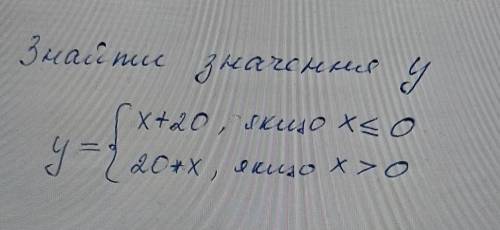 Знайти значення y
y = { x+20, якщо x ≤ 0
20*x, якщо x > 0